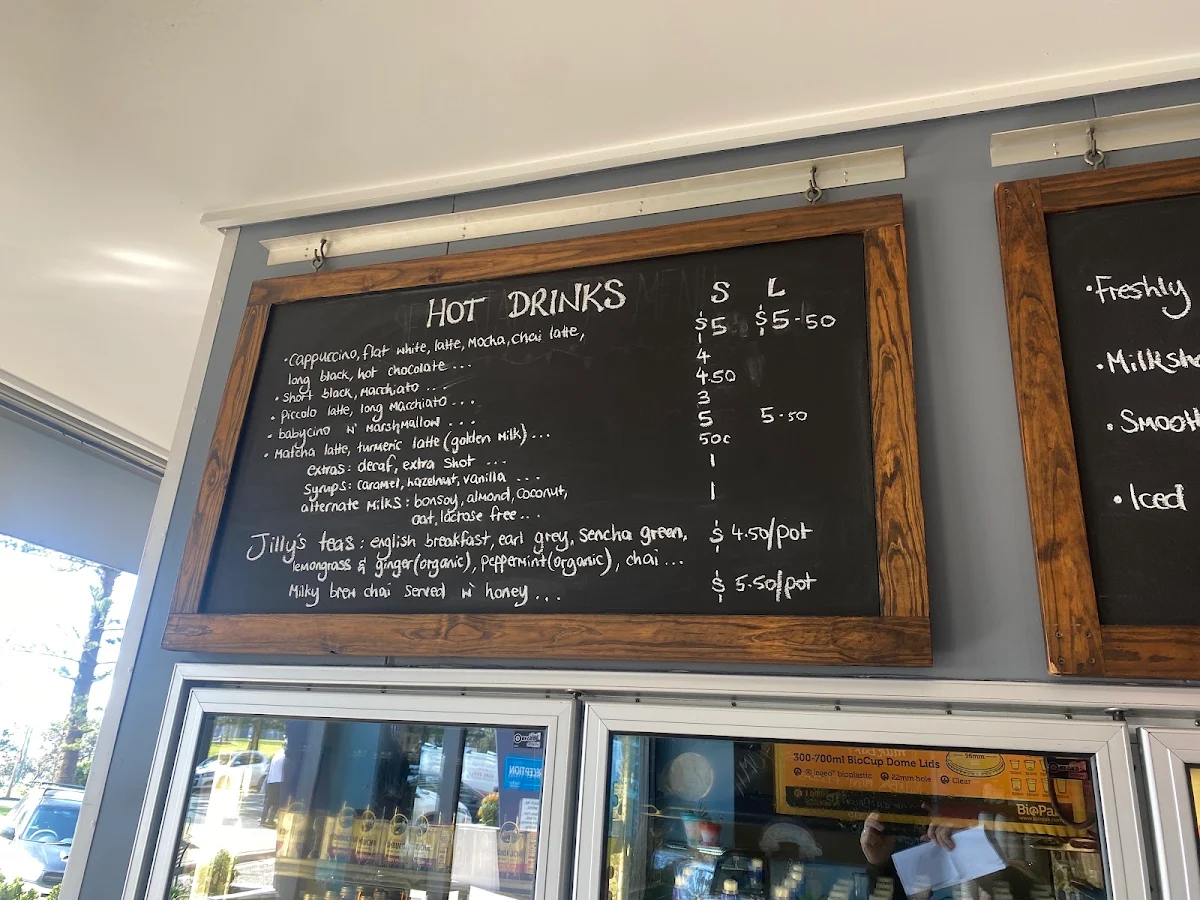 HOT DRINKS S L
• Cappuccino, flat white, latte, Mocha, chai latte, $5 $5.50
long black, hot chocolate ...
• Short black, Macchiato ... 4
• Piccolo latte, long Macchiato ... 4.50
• babycino w' Marshmallow ... 3
• Matcha latte, turmeric latte (golden Milk) ... 5 5.50
extras: decaf, extra shot ... 50c
Syrups: caramel, hazelnut, vanilla ... 1
alternate Milks: bonsoy, almond, coconut, 1
oat, lactose free ...
Jilly's teas: english breakfast, earl grey, sencha green, $4.50/pot
lemongrass & ginger (organic), peppermint (organic), chai ...
Milky brew chai served w' honey ... $5.50/pot
• Freshly
• Milksh
• Smoot
• Iced
RECEPTION
300-700ml BioCup Dome Lids
96mm
22mm hole
Clear
BioPak